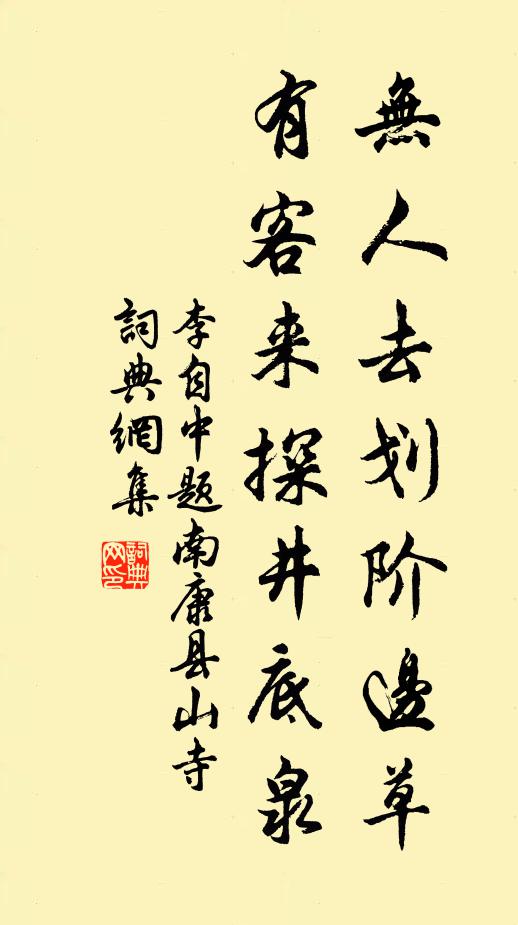 無人去划阶邊草
有客来探井底泉
李自中题南康县山寺
詞典網集
詞典网印